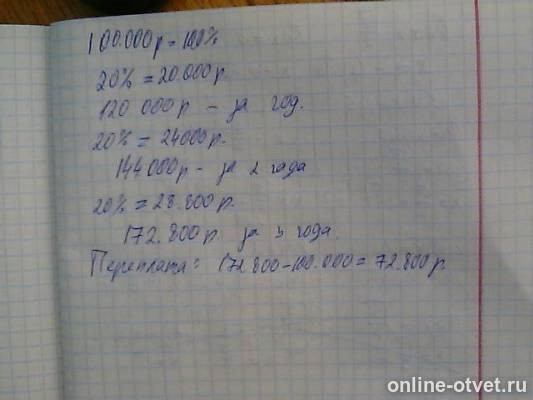 100.000р = 100%
20% = 20.000р.
120 000р - за год.
20% = 24000р.
144000р - за 2 года
20% = 28.800р.
172.800р за 3 года.
Переплата: 172 800-100.000 = 72.800р.
online-otvet.ru